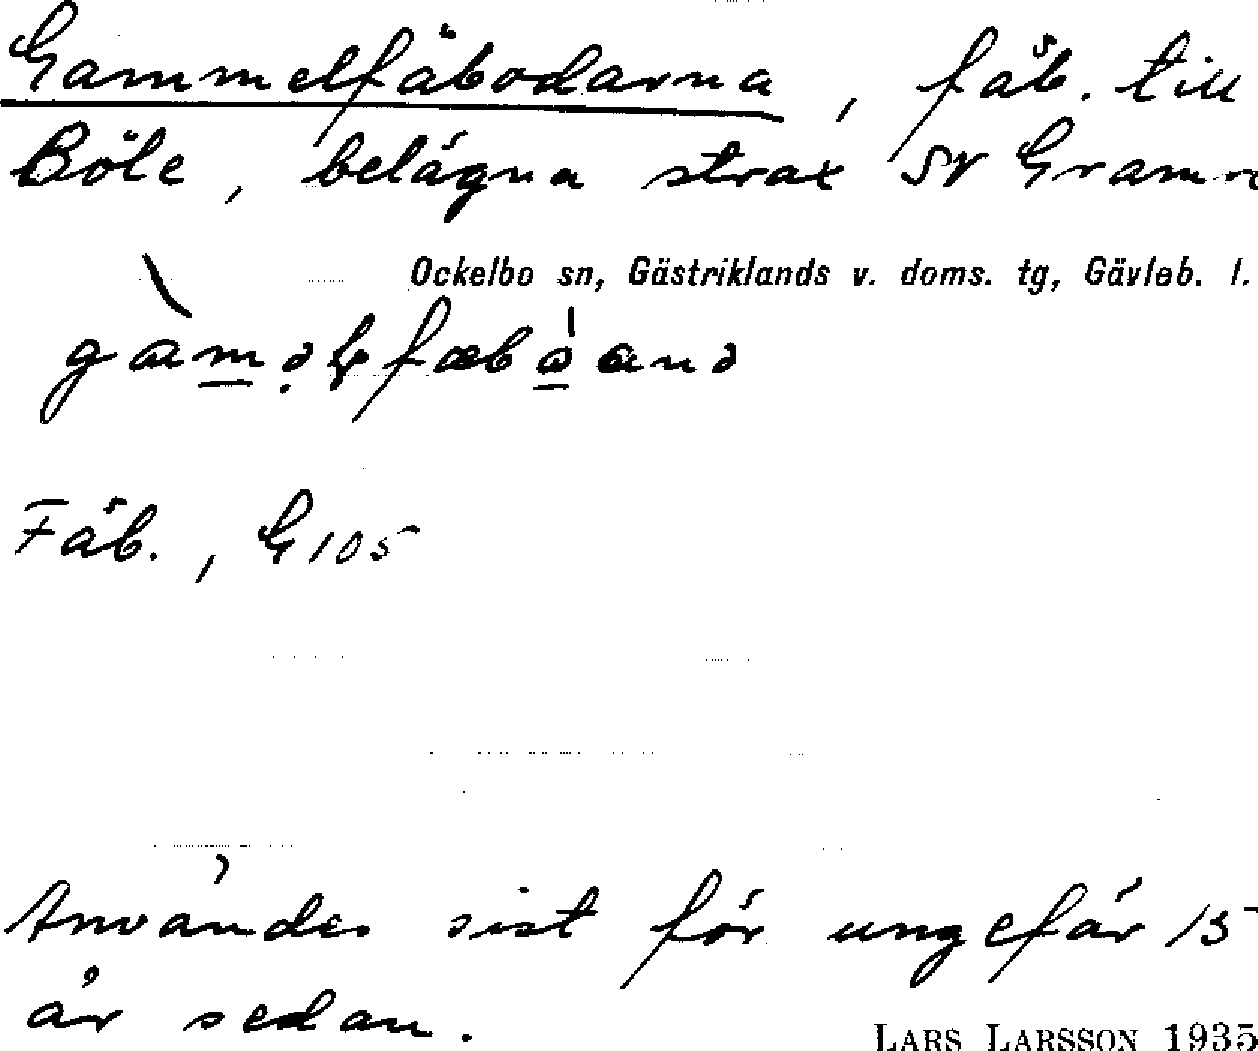 Gammelfäbodarna, fäb. till
Böle, belägna strax SV Gramm
Ockelbo sn, Gästriklands v. doms. tg, Gävleb. l.
Fäb., G105
Användes sist för ungefär 15
år sedan.
LARS LARSSON 1935